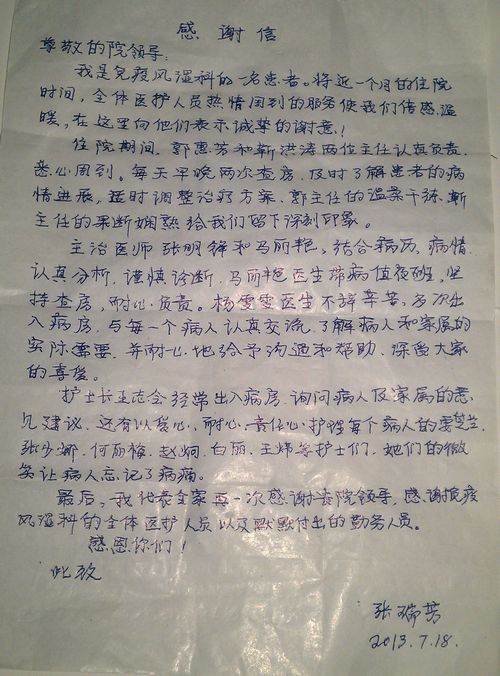 感谢信
尊敬的院领导:
我是免疫风湿科的一名患者。将近一个月的住院
时间,全体医护人员热情周到的服务使我们倍感温
暖,在这里向他们表示诚挚的谢意!
住院期间,郭惠芳和靳洪涛两位主任认真负责,
悉心周到。每天早晚两次查房,及时了解患者的病
情进展,适时调整治疗方案,郭主任的温柔干练,靳
主任的果断娴熟给我们留下深刻印象。
主治医师张明锋和马丽艳,结合病历、病情,
认真分析,谨慎诊断,马丽艳医生带病值夜班,坚
持查房,耐心负责。杨雯雯医生不辞辛苦,多次出
入病房,与每一个病人认真交流,了解病人和家属的
实际需要,并耐心地给予沟通和帮助,深受大家
的喜爱。
护士长王志会经常出入病房,询问病人及家属的意
见建议,还有以爱心、耐心、责任心护理每个病人的
张少娜、何丽梅、赵炯、白丽、王炜等护士们,她们的微
笑让病人忘记了病痛。
最后,我代表全家再一次感谢贵院领导,感谢免疫
风湿科的全体医护人员以及默默付出的勤务人员。
感恩你们!
此致
张瑞芳
2013.7.18.